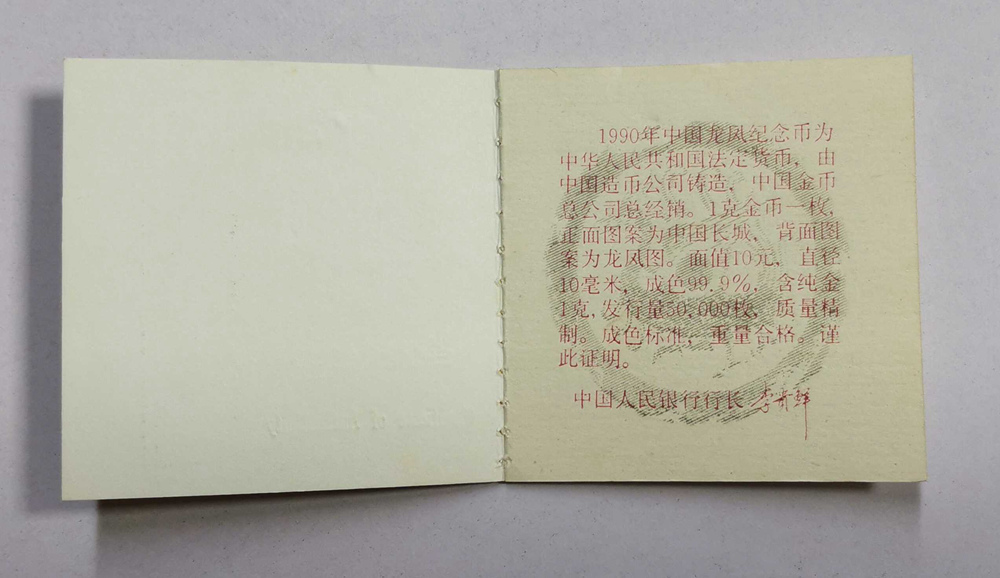 1990年中国龙凤纪念币为
中华人民共和国法定货币，由
中国造币公司铸造，中国金币
总公司总经销。1克金币一枚，
正面图案为中国长城，背面图
案为龙凤图。面值10元，直径
10毫米，成色99.9%，含纯金
1克，发行量50,000枚，质量精
制。成色标准，重量合格。谨
此证明。
中国人民银行行长 李贵鲜